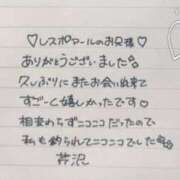 ♡レスポワールのお兄様♡
ありがとうございました
久しぶりにまたお会い出来て
すごーく嬉しかったです♡
相変わらずニコニコだったので
私も釣られてニコニコでした
芹沢